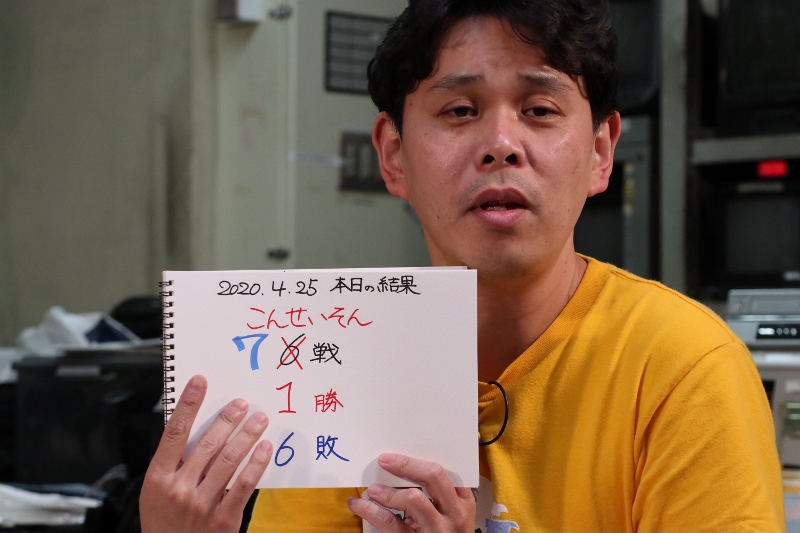 2020.4.25 本日の結果
こんせいそん
7 6 戦
1 勝
6 敗